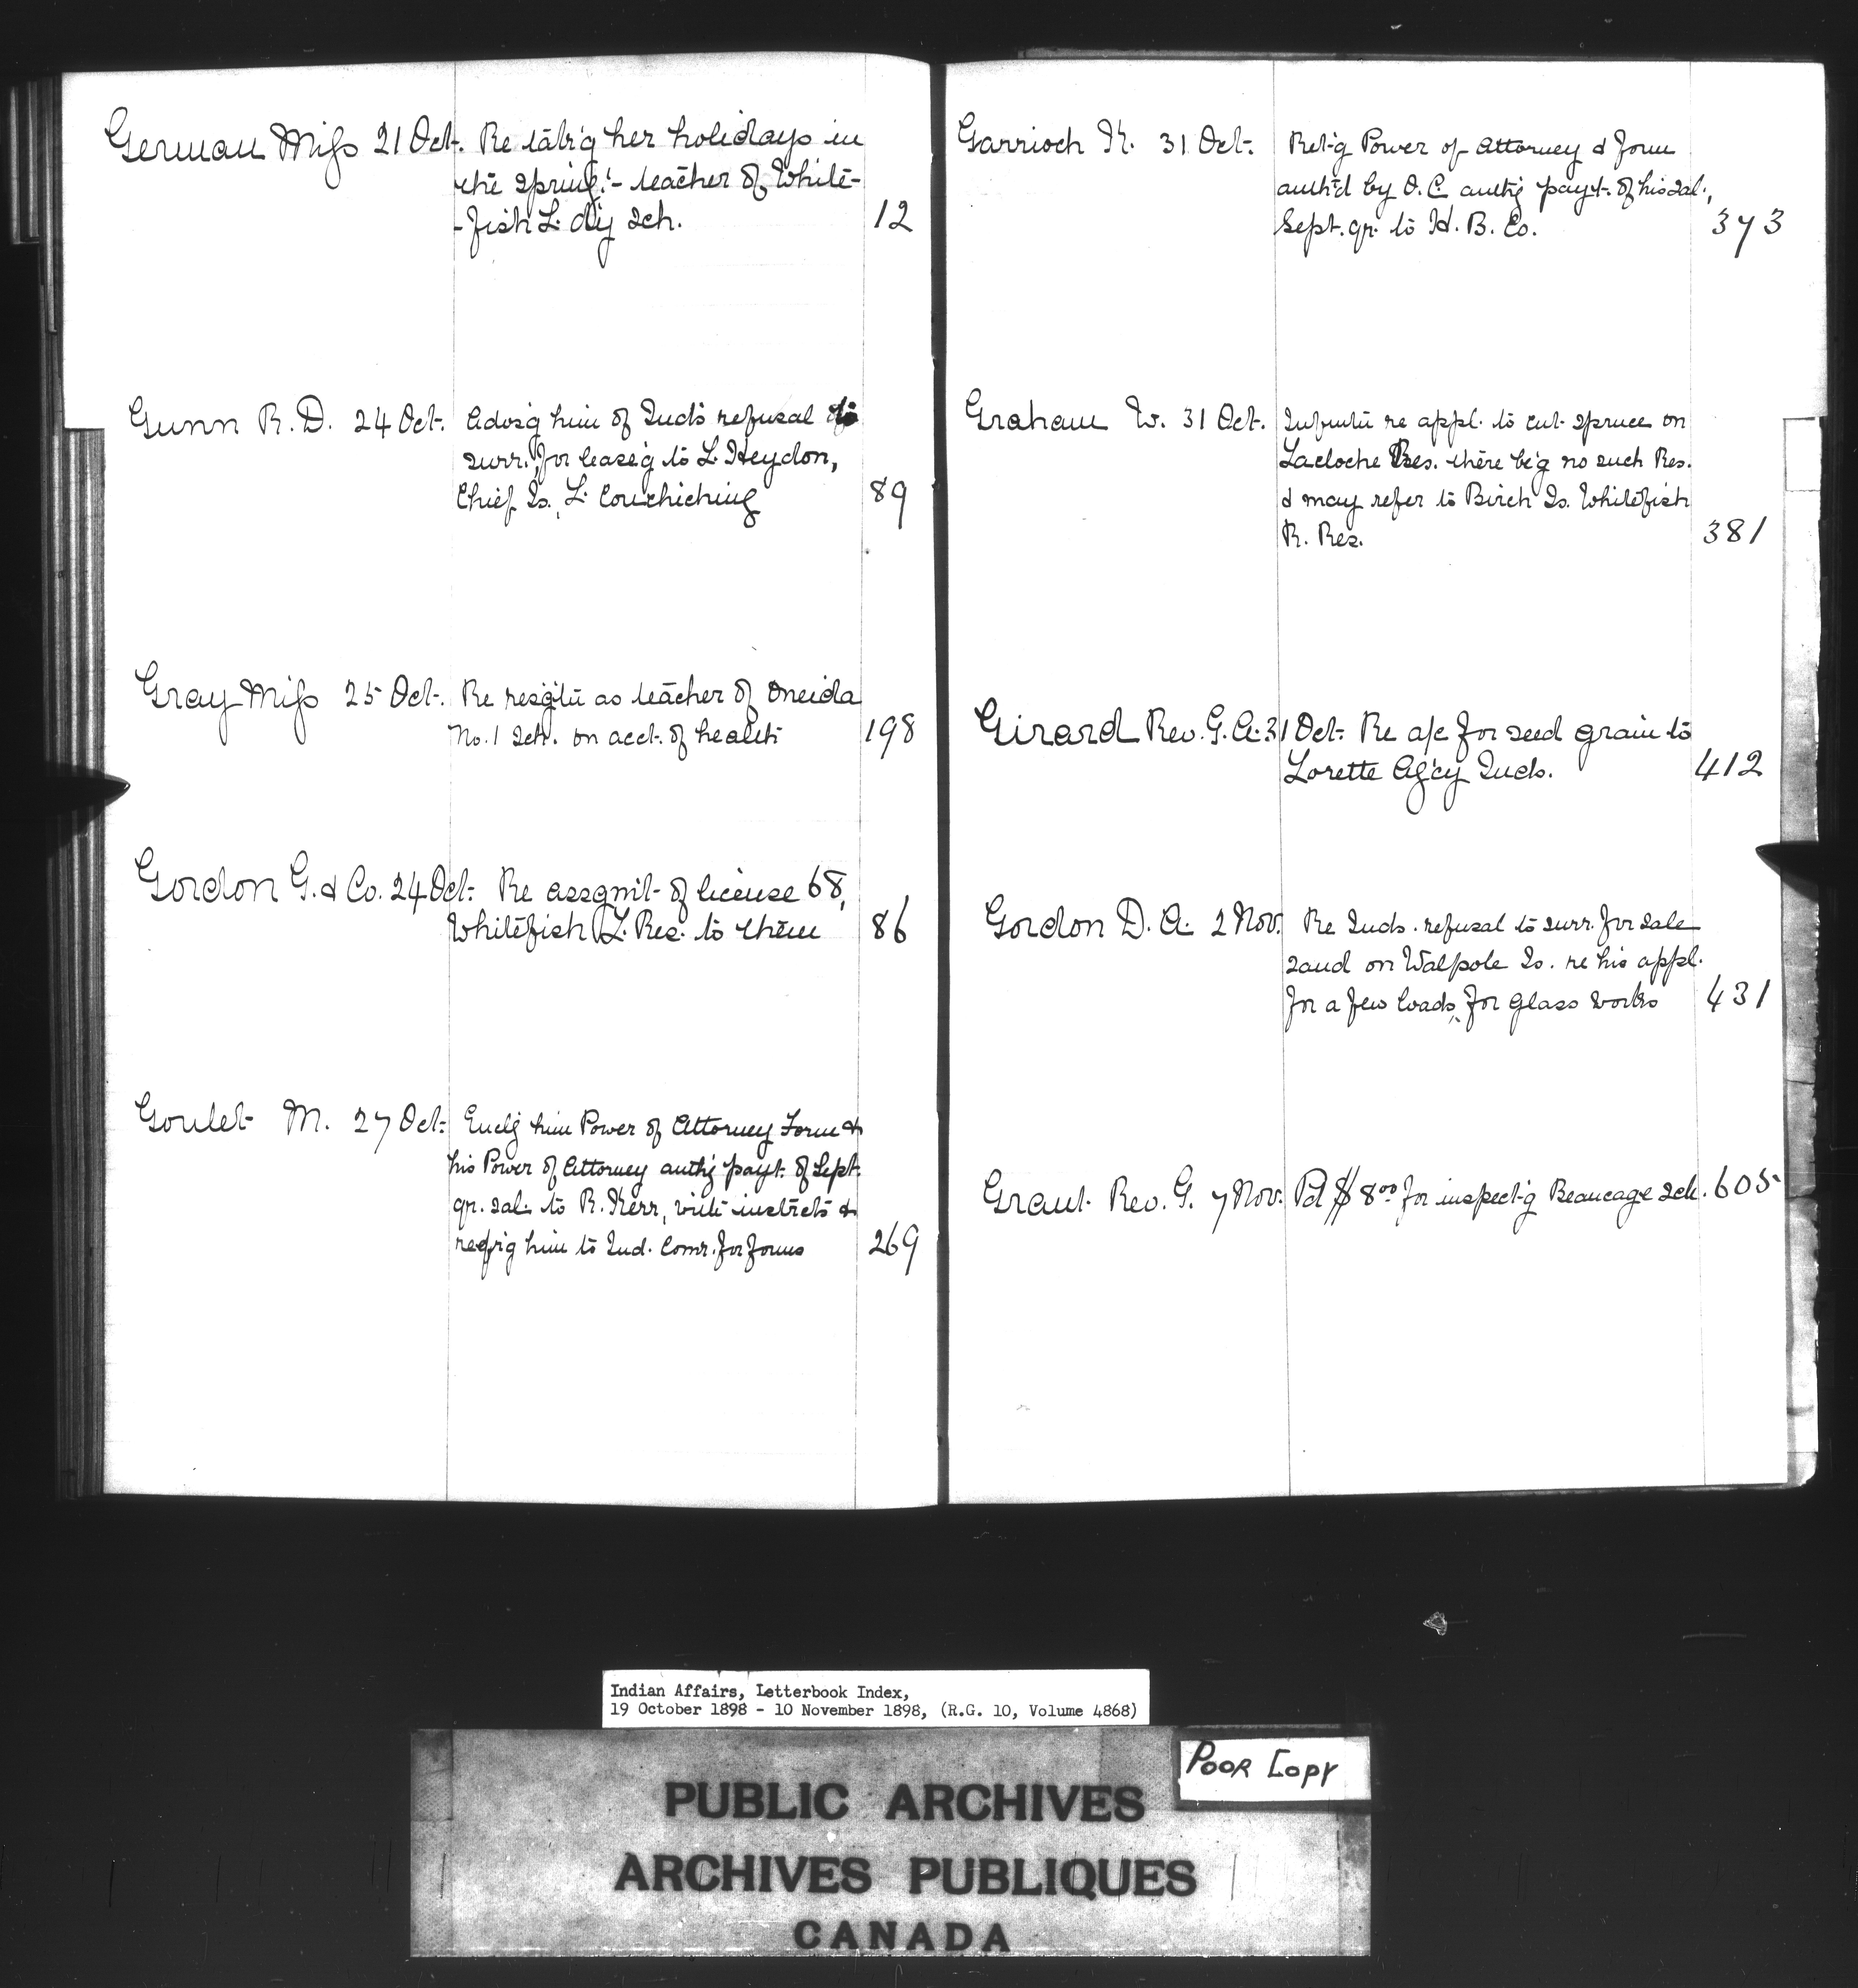 German Miss 21 Oct. Re tak'g her holidays in
the spring:- teacher of White-
-fish L. day sch. 12
Gunn R. D. 24 Oct. Advs'g him of Inds refusal to
surr. for leas'g to L. Heydon,
Chief Is., L. Couchiching 89
Gray Miss 25 Oct. Re resg'tn as teacher of Oneida
No. 1 Sch. on acct. of health 198
Gordon G. & Co. 24 Oct. Re assgmt. of license 68,
Whitefish L. Res. to them 86
Goulet M. 27 Oct. Encl'g him Power of Attorney Form &
his Power of Attorney auth'g payt. of Sept.
qr. sal. to R. Kerr, with instrcts &
refr'g him to Ind. Comr. for forms 269
Garrioch K. 31 Oct. Ret'g Power of Attorney & form
auth'd by O. C. auth'g payt. of his sal.,
Sept. qr. to H. B. Co. 373
Graham W. 31 Oct. Infmtn re appl. to cut spruce on
Lacloche Res. there be'g no such Res.
& may refer to Birch Is. Whitefish
R. Res. 381
Girard Rev. G. A. 31 Oct. Re a/c for seed grain to
Lorette Ag'cy Inds. 412
Gordon D. A. 2 Nov. Re Inds. refusal to surr. for sale
sand on Walpole Is. re his appl.
for a few loads, for glass works 431
Grant Rev. G. 7 Nov. Pd $8.00 for inspect'g Beaucage sch. 605
Indian Affairs, Letterbook Index,
19 October 1898 - 10 November 1898, (R.G. 10, Volume 4868)
POOR COPY
PUBLIC ARCHIVES
ARCHIVES PUBLIQUES
CANADA